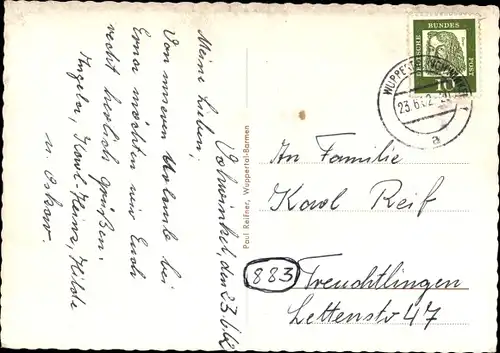 Vohwinkel, den 23.6.62
Meine Lieben,
Von unserem Urlaub bei
Erna möchten wir Euch
recht herzlich grüßen:
Ingeba, Karl-Heinz, Hilde
u. Oskar.
Paul Reißner, Wuppertal-Barmen
DEUTSCHE BUNDESPOST
10
WUPPERTAL-VOHWINKEL
23.6.62
a
An Familie
Karl Reif
883
Treuchtlingen
Lettenstr 47